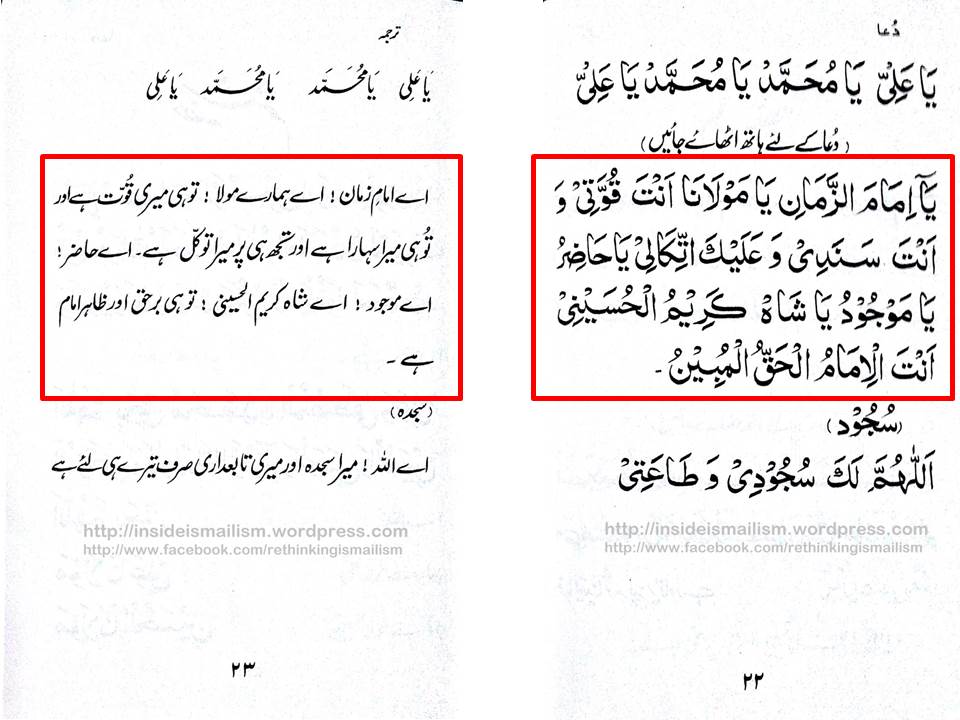 دُعا
يَا عَلِىُّ يَا مُحَمَّدْ يَا مُحَمَّدْ يَا عَلِىُّ
(دُعا کے لئے ہاتھ اٹھائے جائیں)
يَآ اِمَامَ الزَّمَانِ يَا مَوْلَانَا اَنْتَ قُوَّتِىْ وَ
اَنْتَ سَنَدِىْ وَ عَلَيْكَ اتِّكَالِىْ يَا حَاضِرُ
يَا مَوْجُوْدُ يَا شَاهْ كَرِيْمُ الْحُسَيْنِىْ
اَنْتَ الْاِمَامُ الْحَقُّ الْمُبِيْنُ ۔
(سُجُوْد)
اَللّٰهُمَّ لَكَ سُجُوْدِىْ وَ طَاعَتِىْ
http://insideismailism.wordpress.com
http://www.facebook.com/rethinkingismailism
۲۲
ترجمہ
یَا عَلِی یَا مُحَمَّد یَا مُحَمَّد یَا عَلِی
اے امامِ زمان ! اے ہمارے مولا ! تو ہی میری قُوّت ہے اور
تُو ہی میرا سہارا ہے اور تجھ ہی پر میرا توکّل ہے۔ اے حاضر !
اے موجود ! اے شاہ کریم الحسینی ! تو ہی برحق اور ظاہر امام
ہے ۔
(سجدہ)
اے اللہ ! میرا سجدہ اور میری تابعداری صرف تیرے ہی لئے ہے
http://insideismailism.wordpress.com
http://www.facebook.com/rethinkingismailism
۲۳